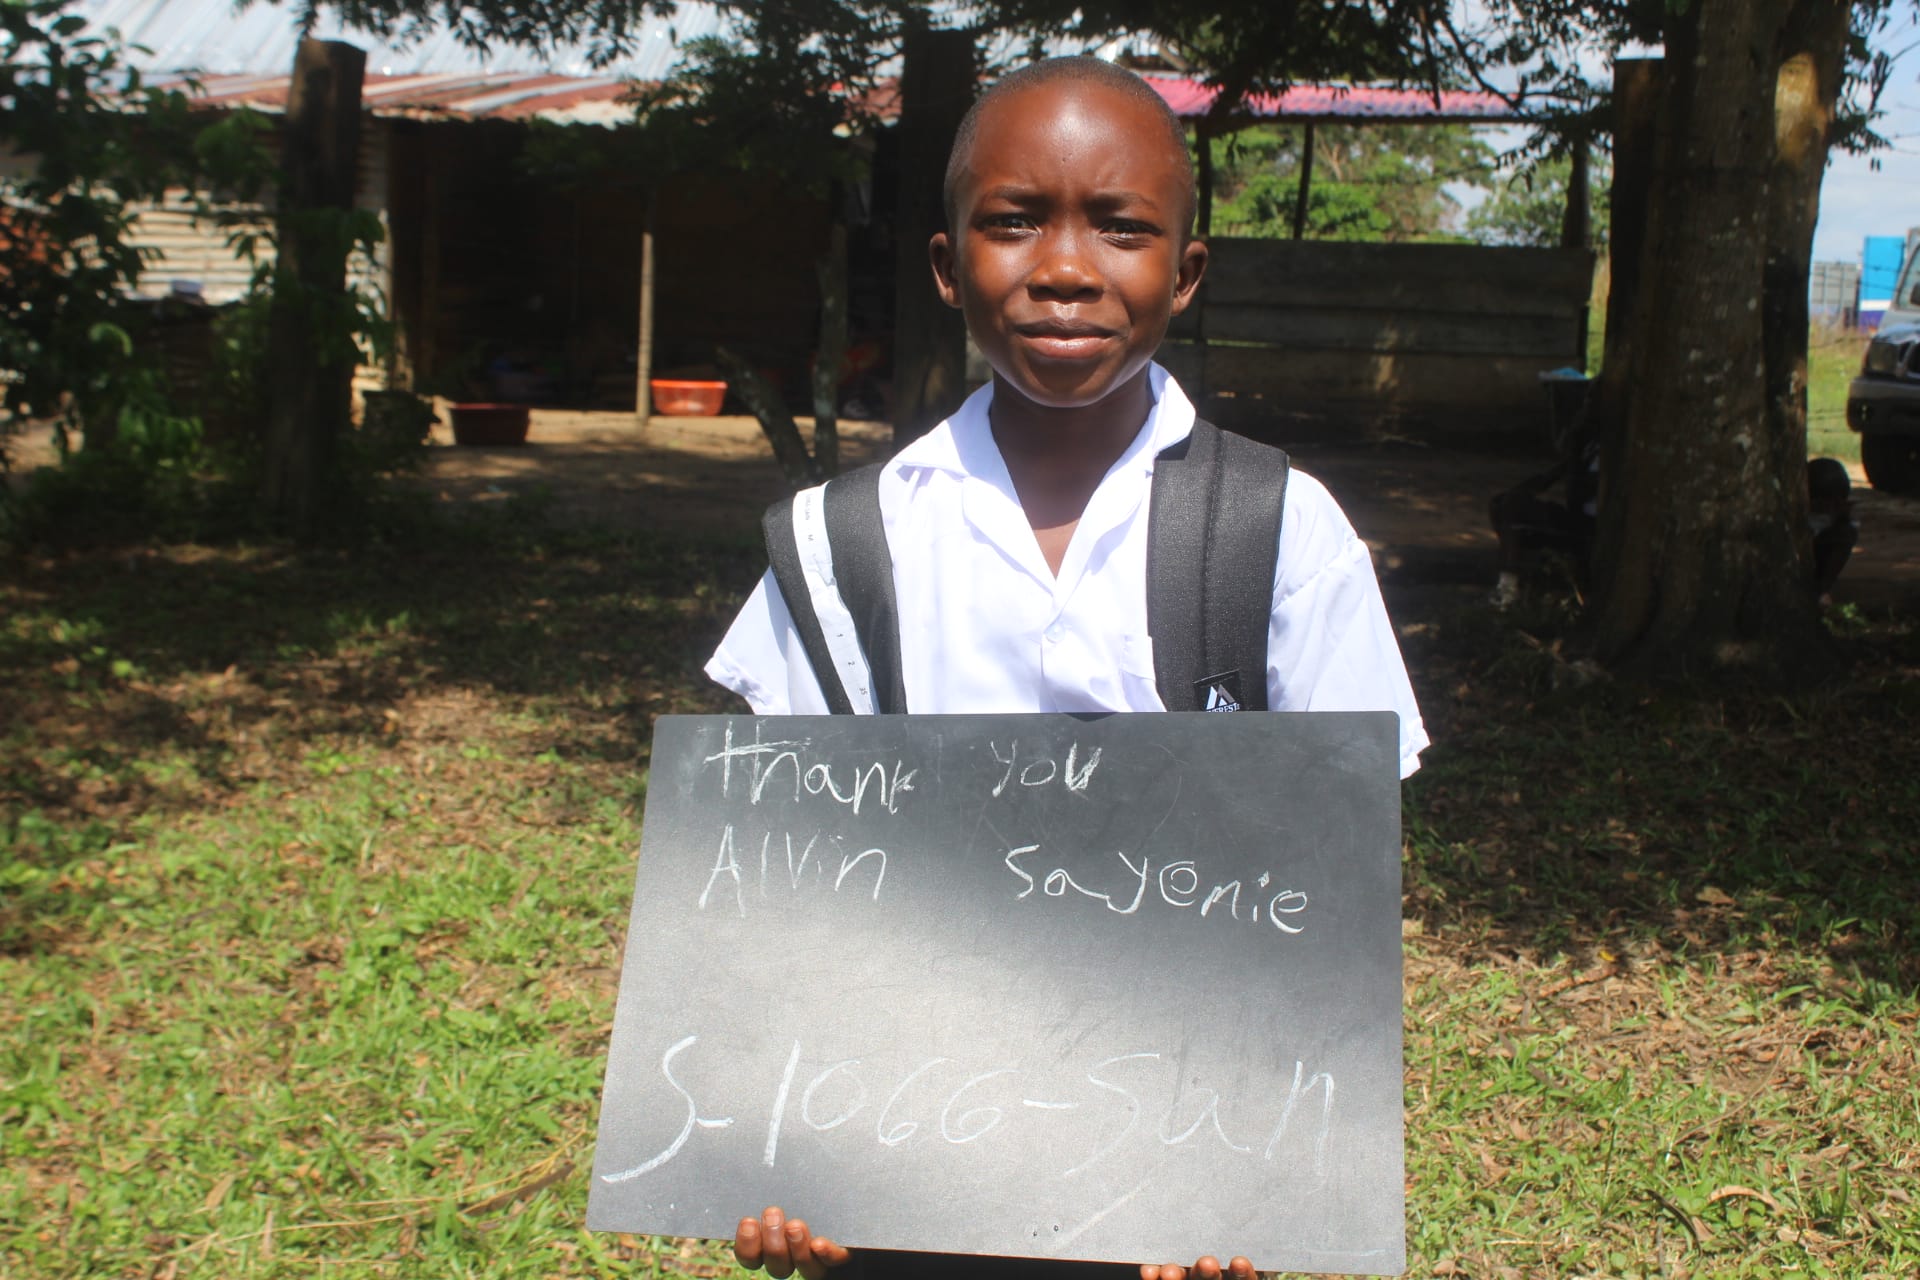 Thank you
Alvin Sayenie
S-1066-San